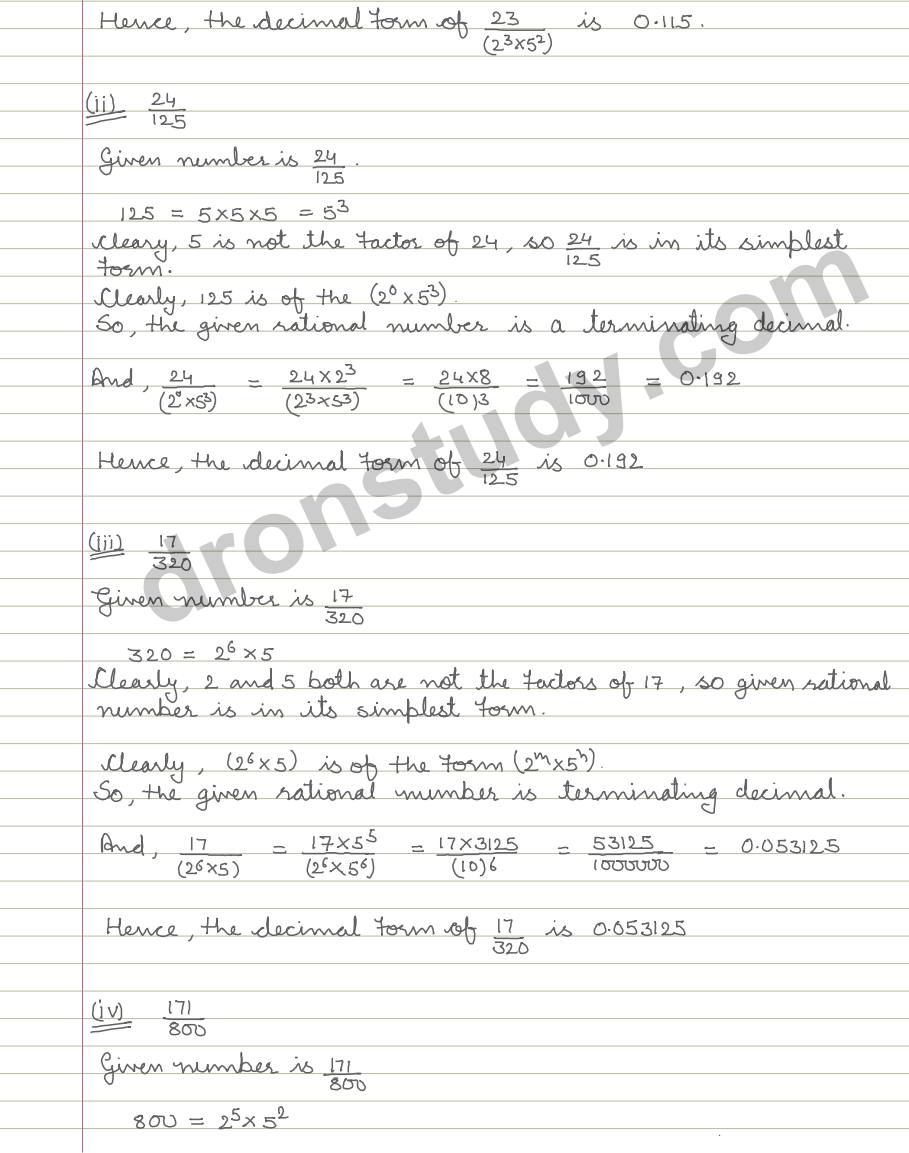 Hence, the decimal form of 23/(2³×5²) is 0.115.
(ii) 24/125
Given number is 24/125.
125 = 5×5×5 = 5³
Cleary, 5 is not the factor of 24, so 24/125 is in its simplest
form.
Clearly, 125 is of the (2⁰×5³).
So, the given rational number is a terminating decimal.
And, 24/(2⁰×5³) = 24×2³/(2³×5³) = 24×8/(10)3 = 192/1000 = 0.192
Hence, the decimal form of 24/125 is 0.192
(iii) 17/320
Given number is 17/320
320 = 2⁶×5
Clearly, 2 and 5 both are not the factors of 17, so given rational
number is in its simplest form.
Clearly, (2⁶×5) is of the form (2ᵐ×5ⁿ).
So, the given rational number is terminating decimal.
And, 17/(2⁶×5) = 17×5⁵/(2⁶×5⁶) = 17×3125/(10)6 = 53125/1000000 = 0.053125
Hence, the decimal form of 17/320 is 0.053125
(iv) 171/800
Given number is 171/800
800 = 2⁵×5²
dronstudy.com